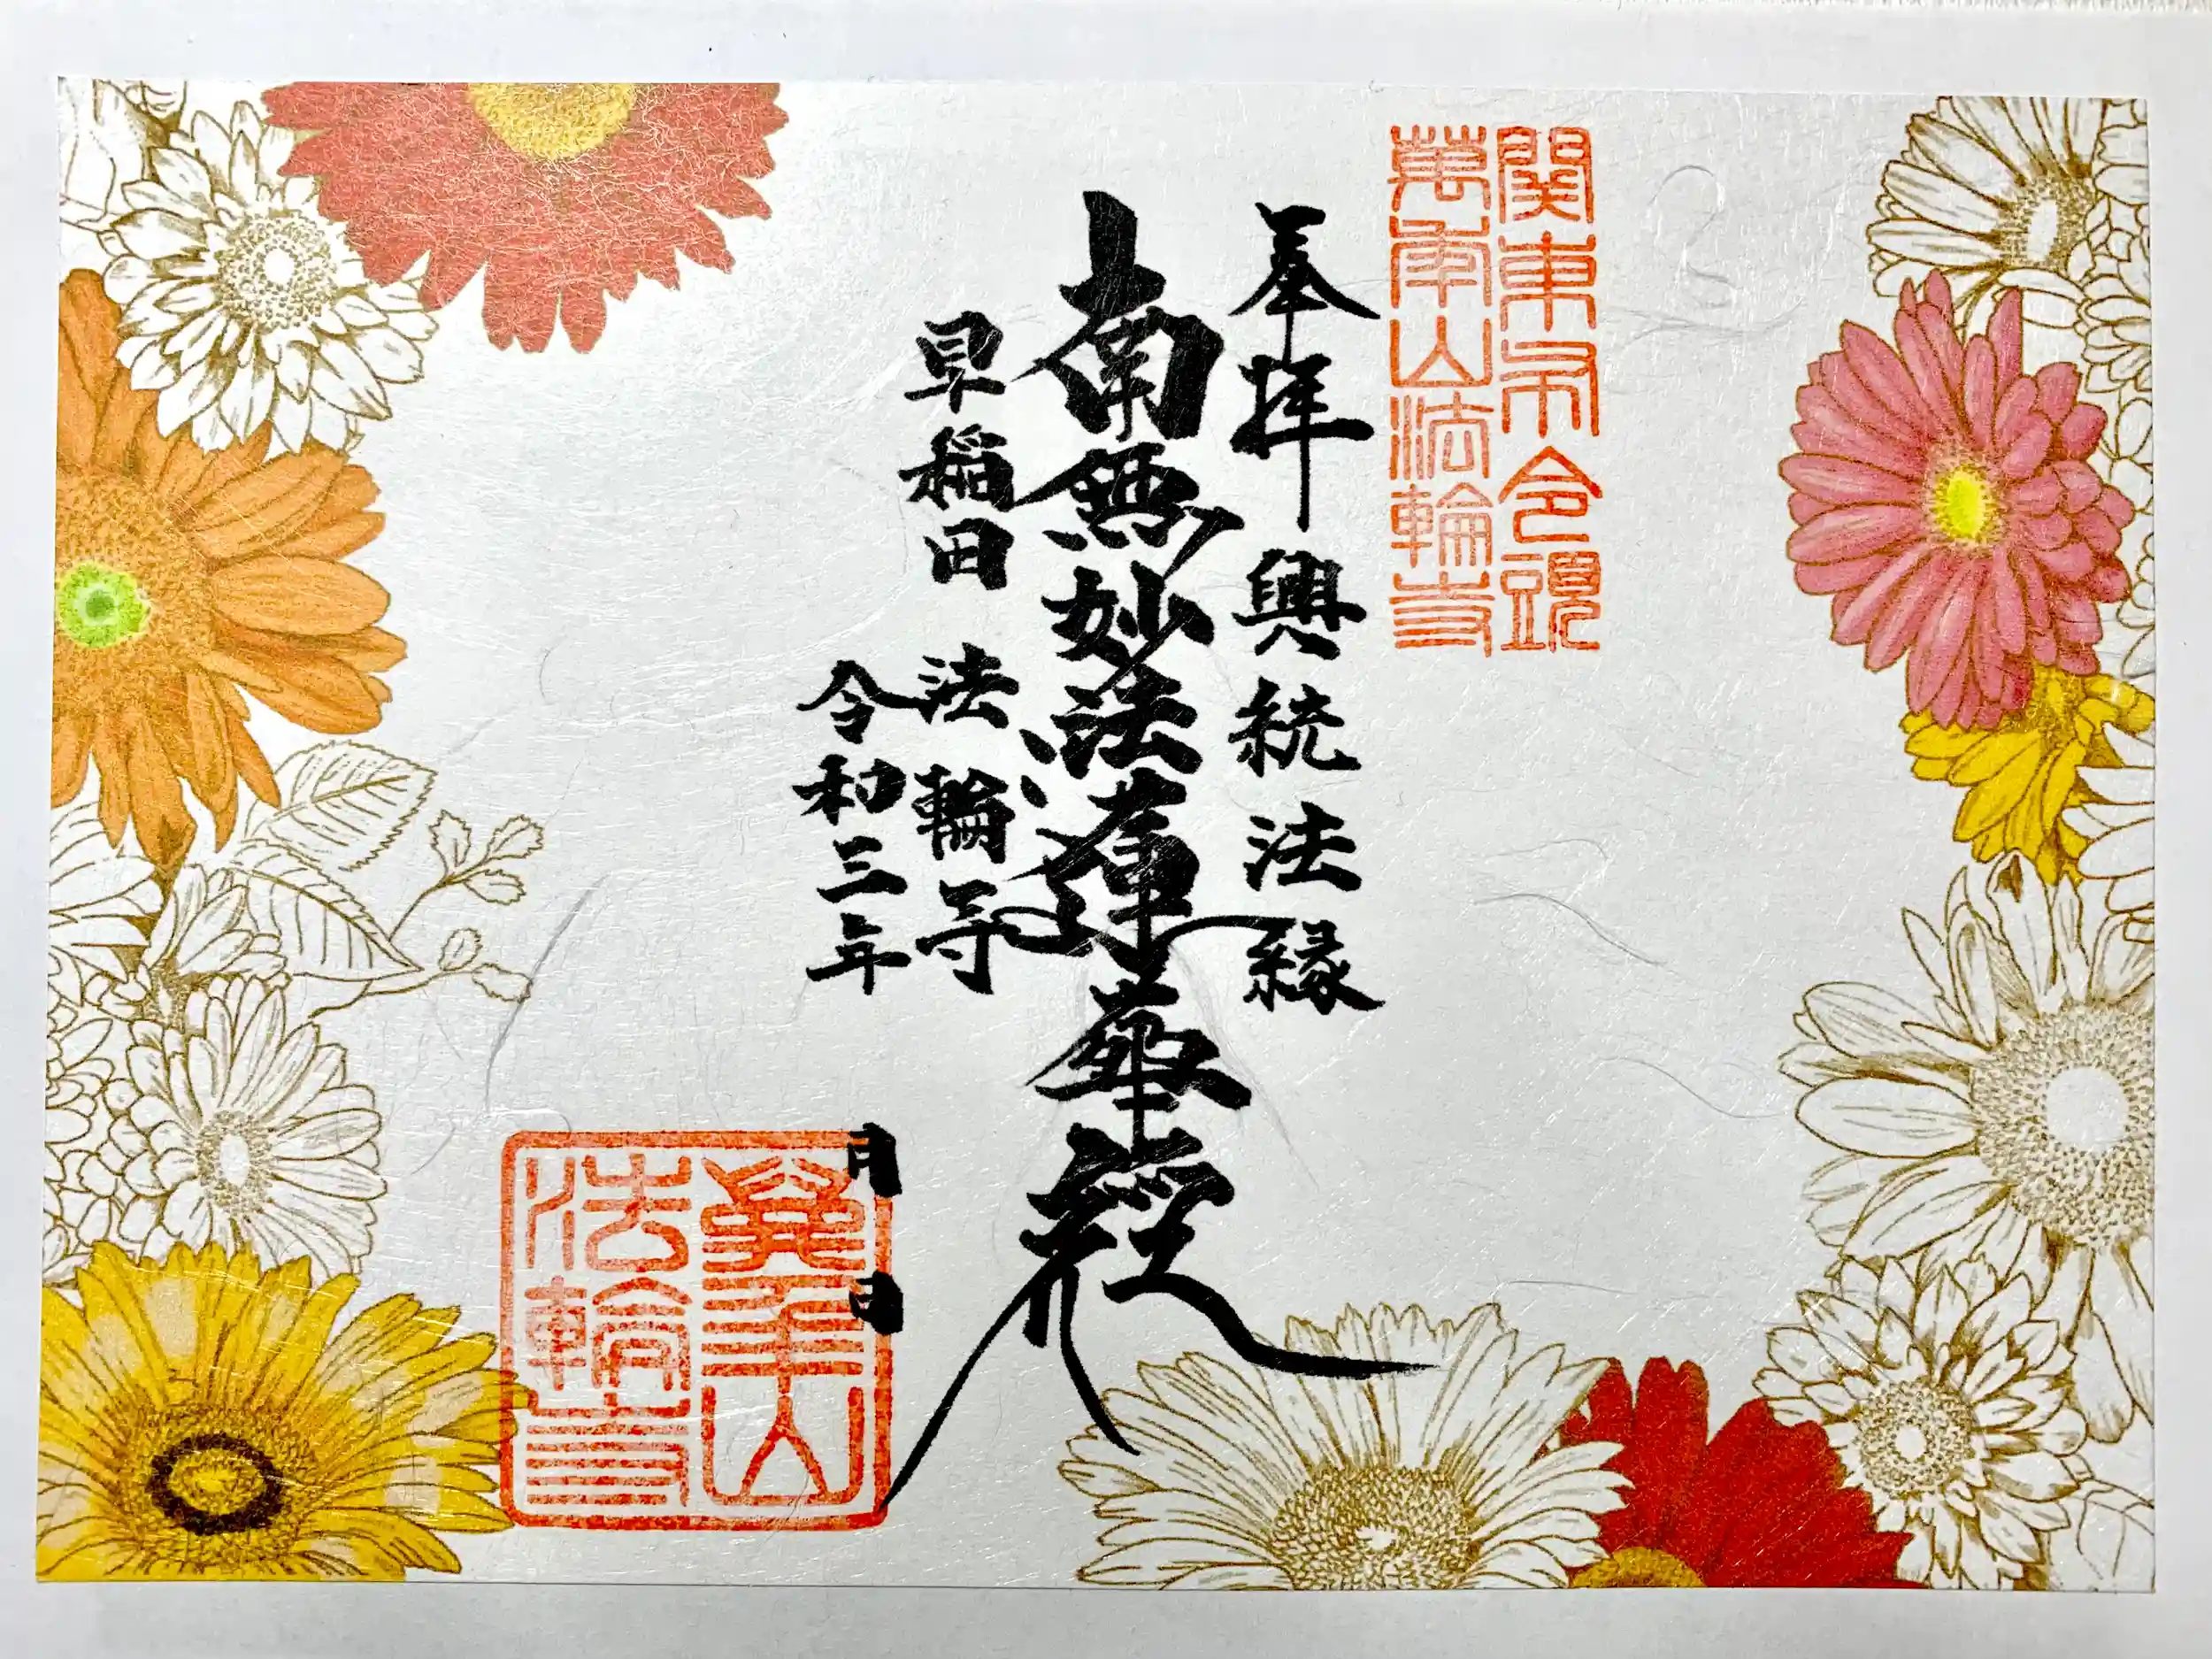 関東布令頭
萬年山法輪寺
奉拝 興統法縁
南無妙法蓮華經
早稲田 法輪寺
令和三年 月 日
萬年山
法輪寺